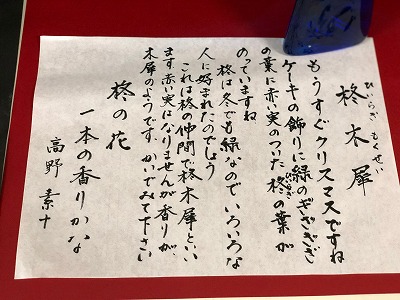 ひいらぎ もくせい
柊木犀
もうすぐクリスマスですね
ケーキの飾りに緑のぎざぎざ
の葉に赤い実のついた柊の葉が
ひいらぎ
のっていますね
柊は冬でも緑なのでいろいろな
人に好まれたのでしょう
これは柊の仲間で柊木犀といい
ます赤い実はなりませんが香りが
木犀のようです。かいでみて下さい
柊の花
一本の香りかな
高野素十